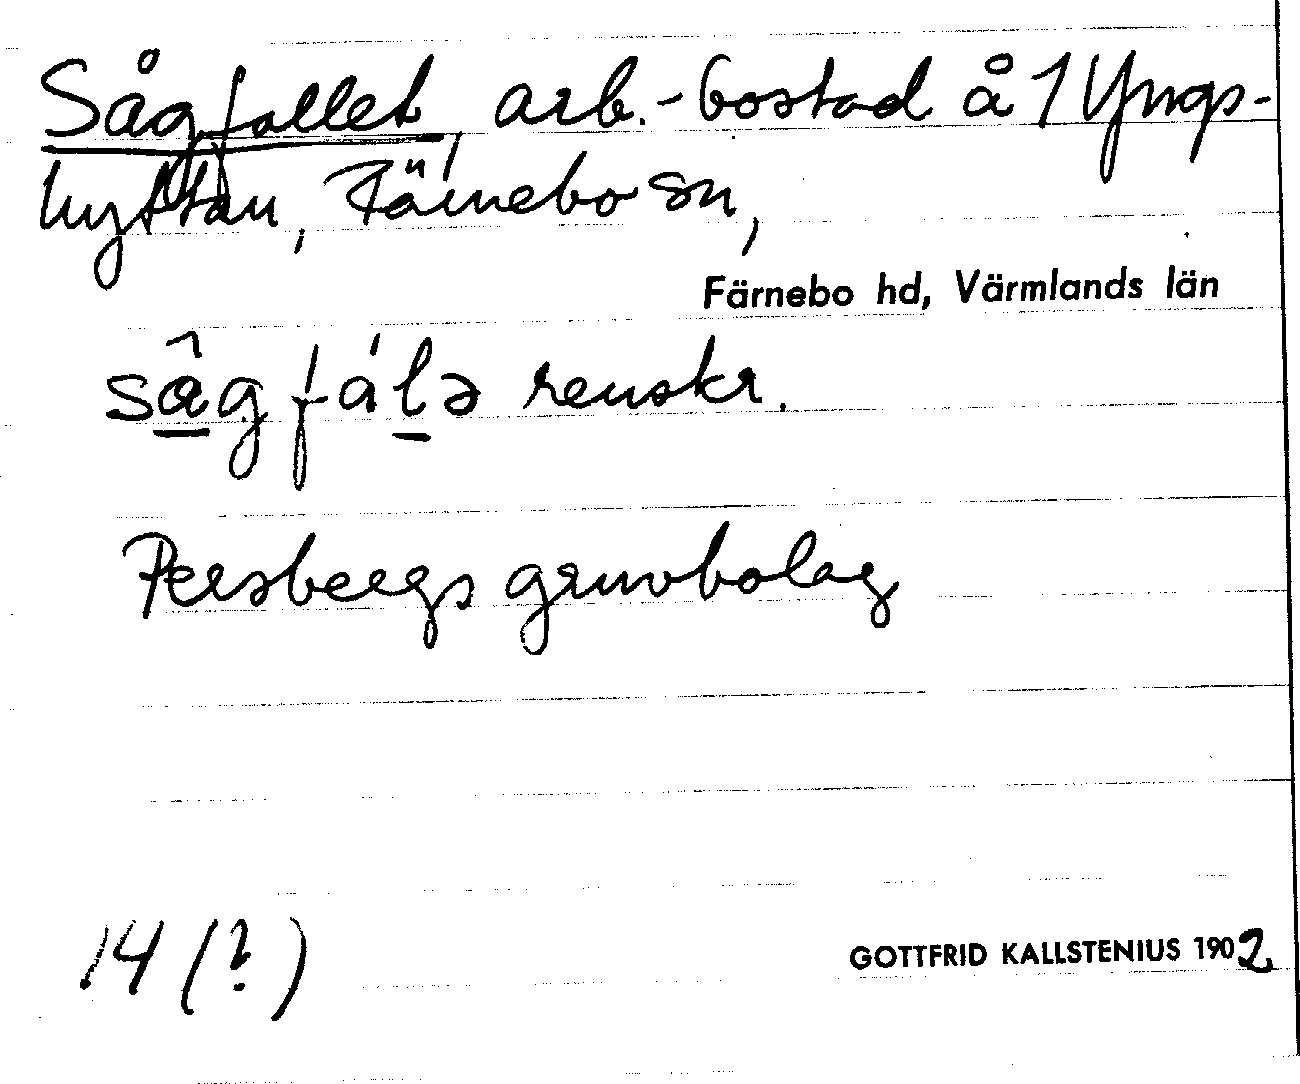 Sågfallet, arb.-bostad å 1 Yngs-
hyttan, Färnebo sn,
Färnebo hd, Värmlands län
sâg fálə renskr.
Persbergs gruvbolag
14 (?)
GOTTFRID KALLSTENIUS 1902